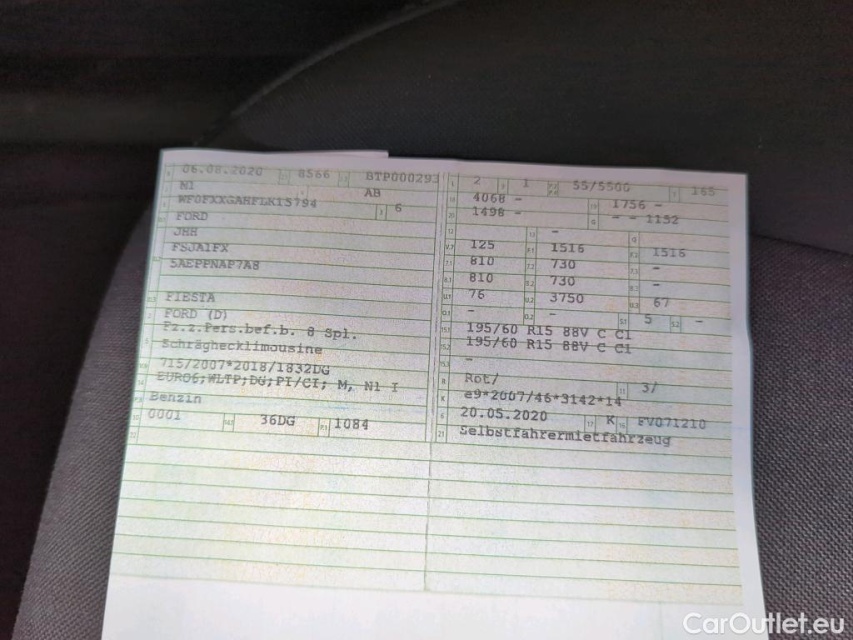 06.08.2020 8566 BTP000293
M1 AB
WF0FXXGAHFLK15794 6
FORD
JHH
FSJA1FX
5AEPPNAP7A8
FIESTA
FORD (D)
Fz.z.Pers.bef.b. 8 Spl.
Schräghecklimousine
715/2007*2018/1832DG
EURO6;WLTP;DG;PI/CI; M, N1 I
Benzin
0001 36DG 1084
2 1 55/5500 165
4068 - 1756 -
1498 - - 1192
- -
125 1516 1516
810 730 -
810 730 -
76 3750 67
- - 5 -
195/60 R15 88V C C1
195/60 R15 88V C C1
-
Rot/ 3/
e9*2007/46*3142*14
20.05.2020 K FV071210
Selbstfahrermietfahrzeug
CarOutlet.eu